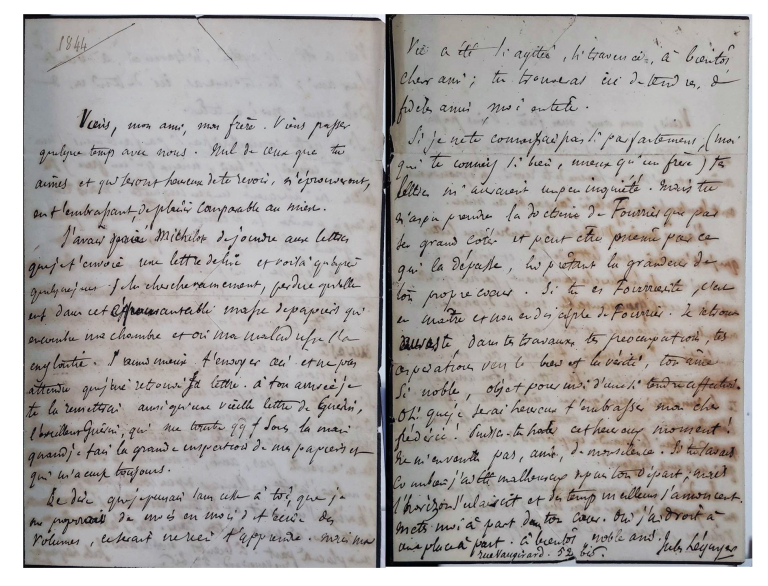 1844
Viens, mon ami, mon frère. Viens passer
quelque temps avec nous. Nul de ceux que tu
aimes et qui seront heureux de te revoir, n'éprouveront,
en t'embrassant, de plaisir comparable au mien.
J'avais Michelot de joindre aux lettres
que je t'envoie une lettre de lui et voilà quelque
je la cherche vainement, perdue qu'elle
est dans cet épouvantable masse de papiers qui
encombre ma chambre et où ma maladresse l'a
engloutie. J'aime mieux t'envoyer ceci et ne pas
attendre que j'aie retrouvé sa lettre. à ton arrivée je
te la remettrai ainsi qu'une vieille lettre de Guérin,
Guérin, qui me tombe qq f sous la main
quand je fais la grande inspection de mes papiers et
qui m'a émue toujours.
Te dire que je pensais sans cesse à toi, que je
me proposais de mois en mois d't'écrire des
volumes, ce serait ne rien t'apprendre. mais ma
Vie a été si agitée, si traversée, à bientôt
cher ami ; tu trouveras ici de tendres, de
fidèles amis, moi en tête.
Si je ne te connaissais pas si parfaitement, (moi
qui te connais si bien, mieux qu'un frère) tes
lettres m'auraient un peu inquiété. Mais tu
n'as pu prendre la doctrine de Fourrier que par
les grands côtés et peut être même par ce
qui la dépasse, lui prêtant la grandeur de
ton propre cœur. Si tu es Fourrieriste c'est
en maître et non en disciple de Fourrier. Je
dans tes travaux, tes préoccupations, tes
aspirations vers le bien et la vérité, ton âme
si noble, objet pour moi d'une si tendre affection.
Oh! que je serai heureux t'embrasser mon cher
frédéric! Puisse-t-il hâter cet heureux moment!
Ne m'en veuille pas, ami, de mon silence. Si tu savais
combien j'ai été malheureux depuis ton départ; mais
l'horizon s'éclaircit et des temps meilleurs s'annoncent.
Mets moi à part dans ton cœur. Oui j'ai droit à
une place à part. à bientôt, noble ami.
rue Vaugirard. 52 bis. Jules